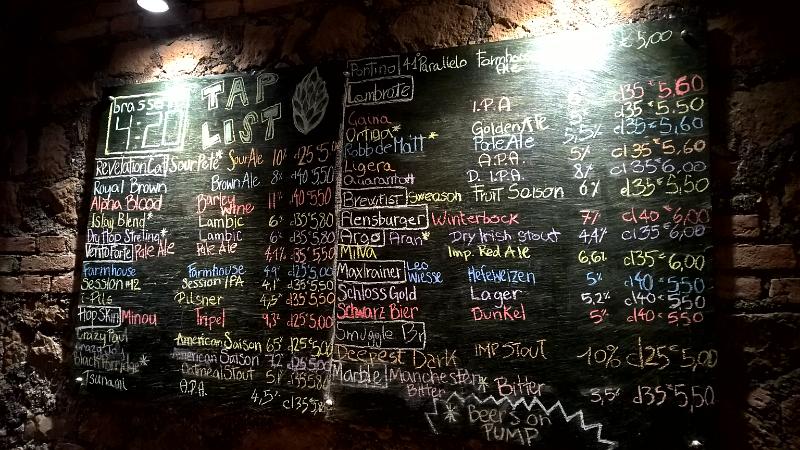 brasserie
4:20
TAP
LIST
Revelation Cat Sour Pete* Sour Ale 10% cl25 5,5
Royal Brown Brown Ale 8% cl40 5,50
Alpha Blood Barley Wine 11% cl40 5,50
Islay Blend* Lambic 6% cl35 5,80
Dry Hop Streling* Lambic 6% cl35 5,80
Vento Forte Pale Ale Pale Ale 4,1% cl35 5,50
Farmhouse Farmhouse 4,9% cl25 5,00
Session M2 Session IPA 4,1% cl35 5,50
i-Pils Pilsner 4,5% cl35 5,50
Hop Skin Minou Tripel 9,3% cl25 5,00
Crazy Paul American Saison 6,5% cl25 5,00
American Saison 7,2 cl25 5,00
Black Porridge* Oatmeal Stout 5% cl35 5,80
Tsunami A.P.A. 4,5% cl35
Pontino 41° Parallelo Farmhouse Ale € 5,00
Lambrate
Gaina I.P.A cl35 € 5,60
Ortiga* Golden Ale cl35 € 5,50
Robb de Matt* Pale Ale 5,5% cl35 € 5,60
Ligera A.P.A. 5% cl35 € 5,60
Quarantott D.I.P.A. 8% cl35 € 6,00
Brewfist Sweason Fruit Saison 6% cl35 € 5,50
Flensburger Winterbock 7% cl40 € 6,00
Argo Aran* Dry Irish Stout 4,4% cl35 € 6,00
Milva Imp. Red Ale 6,6% cl35 € 6,00
Maxlrainer Leo Wiesse Hefeweizen 5% cl40 € 5,50
Schloss Gold Lager 5,2% cl40 € 5,50
Schwarz Bier Dunkel 5% cl40 € 5,50
Smuggle Br
Deepest Dark IMP. STOUT 10% cl25 € 5,00
Marble Manchester Bitter* Bitter 3,5% cl35 € 5,50
* Beer's on
PUMP